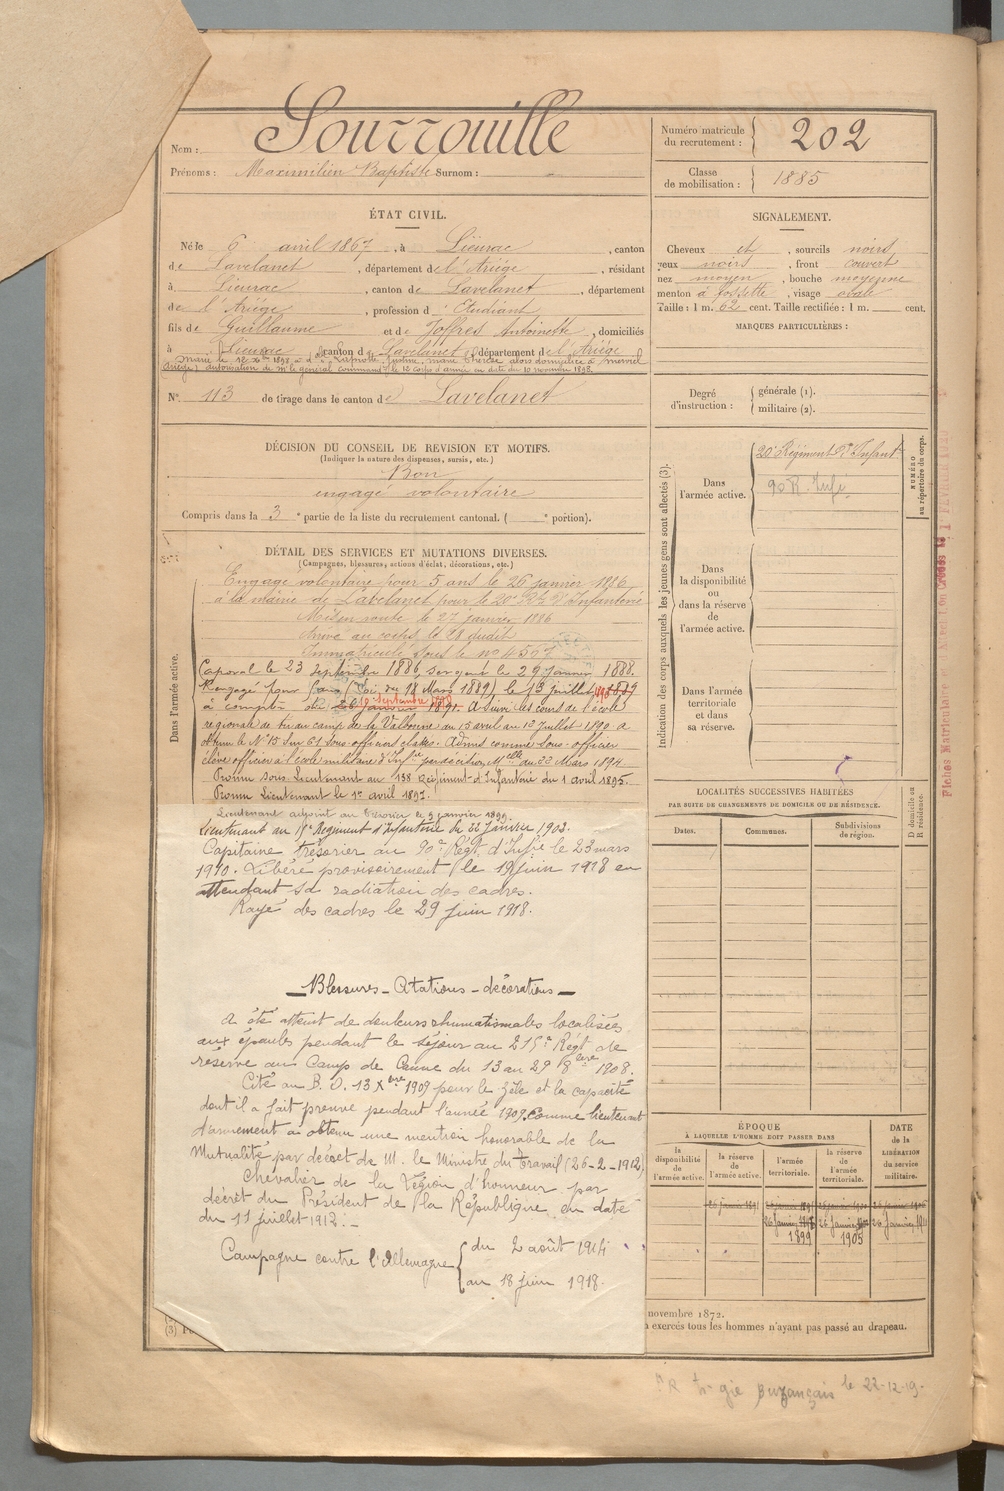 Nom : Sourrouille
Prénoms : Maximilien Baptiste Surnom :
Numéro matricule du recrutement : 202
Classe de mobilisation : 1885
ÉTAT CIVIL.
Né le 6 avril 1867, à Lieurac, canton
de Lavelanet, département de l'Ariége, résidant
à Lieurac, canton de Lavelanet, département
de l'Ariége, profession d'Etudiant
fils de Guillaume et de Joffres Antoinette, domiciliés
à Lieurac canton de Lavelanet département de l'Ariége
autorisation de Mr le général commandt le 12 corps d'armée en date du 10 novembre 1898
N° 113 de tirage dans le canton de Lavelanet
SIGNALEMENT.
Cheveux et, sourcils noirs
yeux noirs, front couvert
nez moyen, bouche moyenne
menton à fossette, visage ovale
Taille : 1 m. 62 cent. Taille rectifiée : 1 m. cent.
MARQUES PARTICULIÈRES :
Degré d'instruction : générale (1).
militaire (2).
DÉCISION DU CONSEIL DE REVISION ET MOTIFS.
(Indiquer la nature des dispenses, sursis, etc.)
Bon
engagé volontaire
Compris dans la 3e partie de la liste du recrutement cantonal. ( e portion).
DÉTAIL DES SERVICES ET MUTATIONS DIVERSES.
(Campagnes, blessures, actions d'éclat, décorations, etc.)
Dans l'armée active.
Engagé volontaire pour 5 ans le 26 janvier 1886
à la mairie de Lavelanet pour le 20e Rt d'Infanterie
Mis en route le 27 janvier 1886
Arrivé au corps le 28 dudit
Immatriculé sous le no 4507
Caporal le 23 septembre 1886 sergent le 29 janvier 1888.
Rengagé pour (Loi du 18 Mars 1889), le 13 juillet
à compter du 1891. A suivi les cours de l'école
régionale de tir au camp de la Valbonne du 15 avril au 12 Juillet 1890 a
obtenu le N° 15 sur 61 sous-officiers classés. Admis comme sous-officier
élève officier à l'école militaire d'Infie par décision Mlle du 22 Mars 1894
Promu sous-Lieutenant au 138 Régiment d'Infanterie du 1 avril 1895.
Promu Lieutenant le 1er avril 1897.
Lieutenant adjoint au Trésorier le 9 janvier 1899
Lieutenant au Régiment d'Infanterie le 22 Janvier 1903.
Capitaine trésorier au 90e Régt d'Infie le 23 mars
1910. Libéré provisoirement le 19 juin 1918 en
attendant sa radiation des cadres.
Rayé des cadres le 29 juin 1918.
Blessures - Citations - décorations
A été atteint de douleurs rhumatismales localisées
aux épaules pendant le séjour au 215e Régt de
réserve au Camp de du 13 au 29 8bre 1908.
Cité au B. O. 13 Xbre 1909 pour le zèle et la capacité
dont il a fait preuve pendant l'année 1909 comme lieutenant
d'armement a obtenu une mention honorable de la
Mutualité par décret de M. le Ministre du Travail (26-2-1912)
Chevalier de la Légion d'honneur par
décret du Président de la République en date
du 11 juillet 1912.
Campagne contre l'Allemagne { du 2 août 1914
au 18 juin 1918.
Indication des corps auxquels les jeunes gens sont affectés (3).
NUMÉRO au répertoire du corps.
Dans l'armée active. 20e Régiment d'Infantie
90 R. Infie
Dans la disponibilité ou dans la réserve de l'armée active.
Dans l'armée territoriale et dans sa réserve.
LOCALITÉS SUCCESSIVES HABITÉES
PAR SUITE DE CHANGEMENTS DE DOMICILE OU DE RÉSIDENCE.
Dates. Communes. Subdivisions de région. D domicile ou R résidence.
ÉPOQUE
À LAQUELLE L'HOMME DOIT PASSER DANS
la disponibilité de l'armée active. la réserve de l'armée active. l'armée territoriale. la réserve de l'armée territoriale. DATE de la LIBÉRATION du service militaire.
26 janvier 1891
1899 1905
novembre 1872.
exercés tous les hommes n'ayant pas passé au drapeau.
Buzançais le 22-12-19